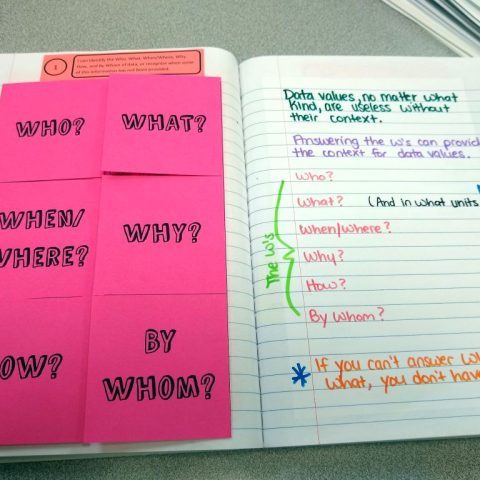 1
I can identify the Who, What, When/Where, Why,
How, and By Whom of data, or recognize when some
of this information has not been provided.
WHO?
WHAT?
WHEN/
WHERE?
WHY?
OW?
BY
WHOM?
Data values, no matter what
kind, are useless without
their context.
Answering the W's can provid
the context for data values.
The W's
Who?
What? (And in what units
When/Where?
Why?
How?
By Whom?
* If you can't answer Wh
what, you don't have